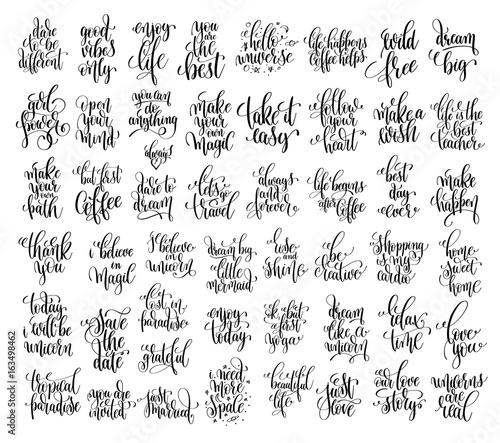 dare to be different
good vibes only
enjoy life
you are the best
hello universe
life happens coffee helps
wild free
dream big
girl power
open your mind
you can do anything
always
make your own magic
take it easy
follow your heart
make a wish
life is the best teacher
make your own path
but first coffee
dare to dream
let's travel
always and forever
life begins after coffee
best day ever
make happen
thank you
i believe in magic
I believe in unicorn
dream big little mermaid
rise and shine
be creative
shopping is my cardio
home sweet home
today i will be unicorn
save the date
lost in paradise
grateful
enjoy today
ok, but first yoga
dream like a unicorn
relax time
love you
tropical paradise
you are invited
just married
i need more space
beautiful life
just love
our love story
unicorns are real
163498462